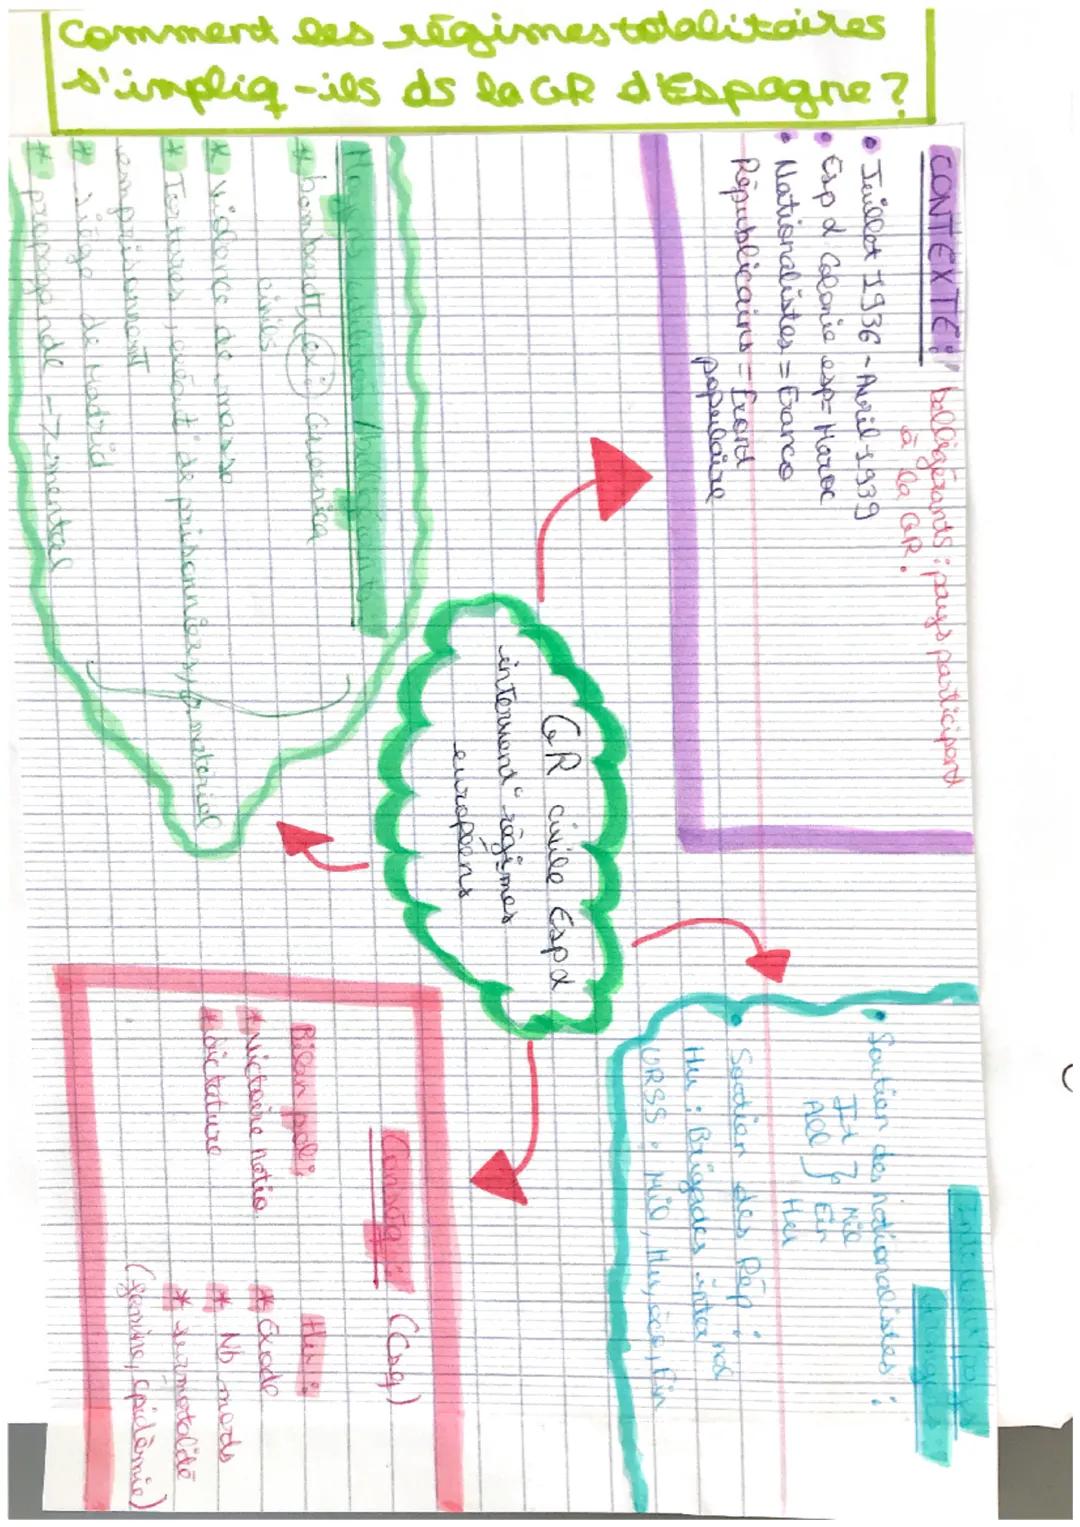 Comment les régimes totalitaires
s'impliq-ils ds la GR d'Espagne ?
CONTEXTE : belligérants : pays participant
à la GR.
• Juillet 1936 - Avril 1939
• Esp & Colonie esp = Maroc
• Nationalistes = Franco
Républicains = Front
populaire
GR civile Esp &
intervent° régimes
européens
étrangers
• Soutien des nationalistes :
It } Mil
All } Fin
Hu
• Soutien des Rép :
Hu : Brigades internal
URSS : Mil, Hu, éco, Fin
Moyens utilisés / belligérants
* bombardt, ex : Guernica
civils
* Violence de masse
* Tortures, exécut° de prisonniers, matériel
emprisonnemt
* siège de Madrid
* propagande -> mental
Conséq : (Csq)
Bilan poli :
* victoire natio
* dictature
Hu :
* Exode
* Nb morts
* surmortalité
(famine, épidémie)